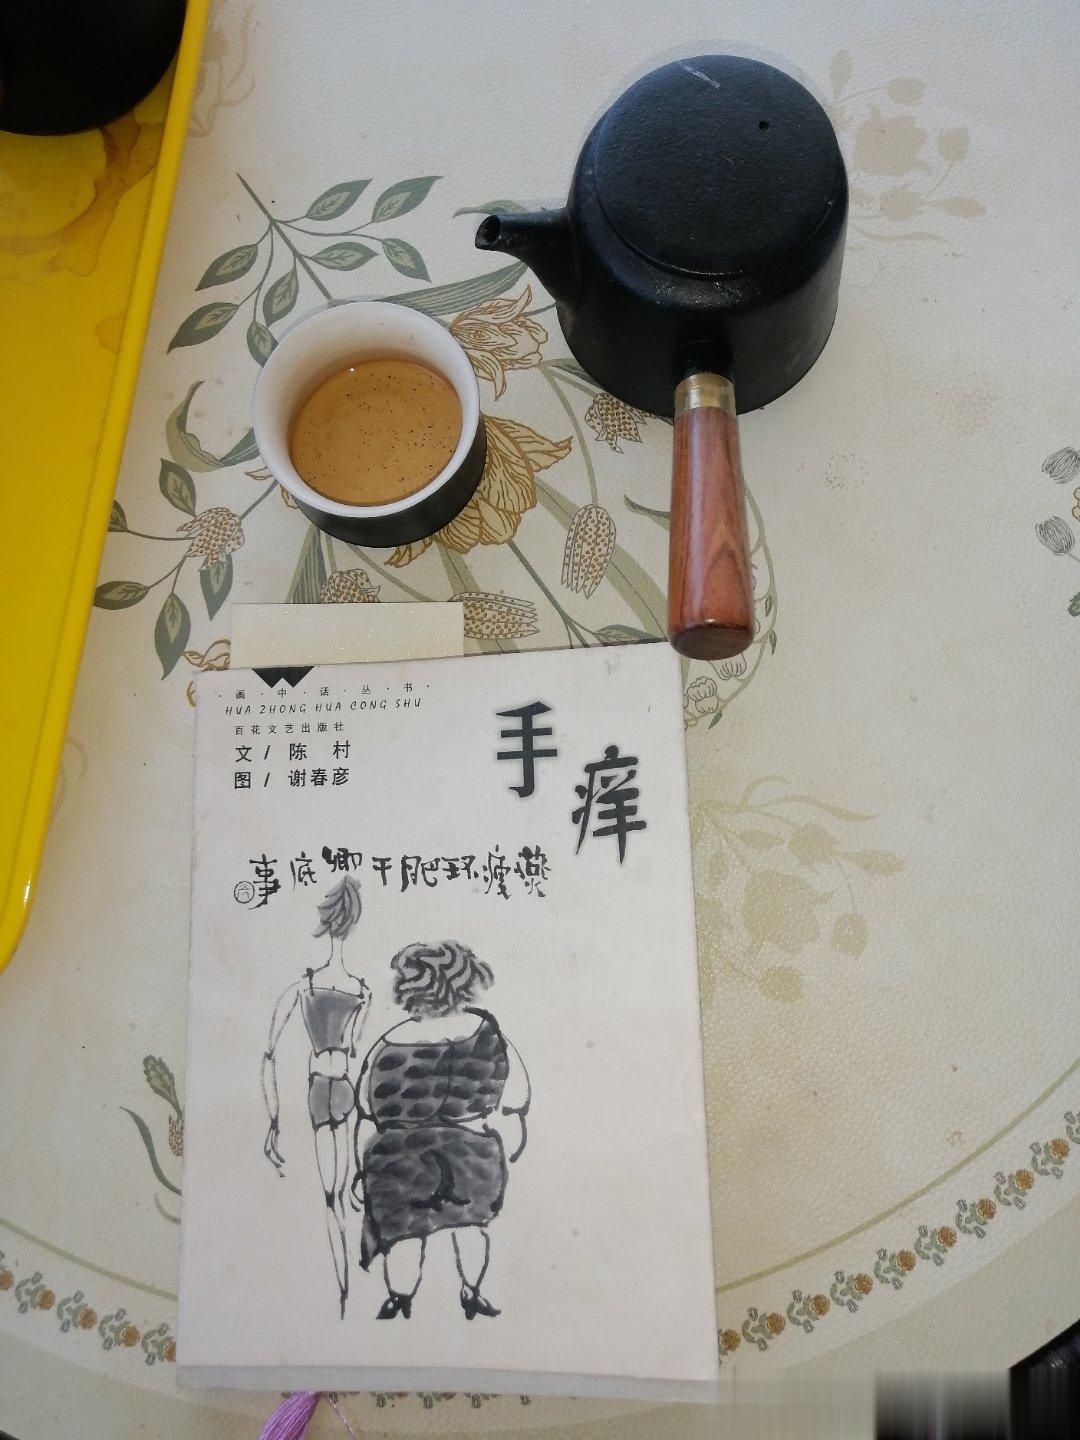 ·画·中·话·丛·书·
HUA ZHONG HUA CONG SHU
百花文艺出版社
文 / 陈 村
图 / 谢春彦
手痒
燕瘦环肥干卿底事